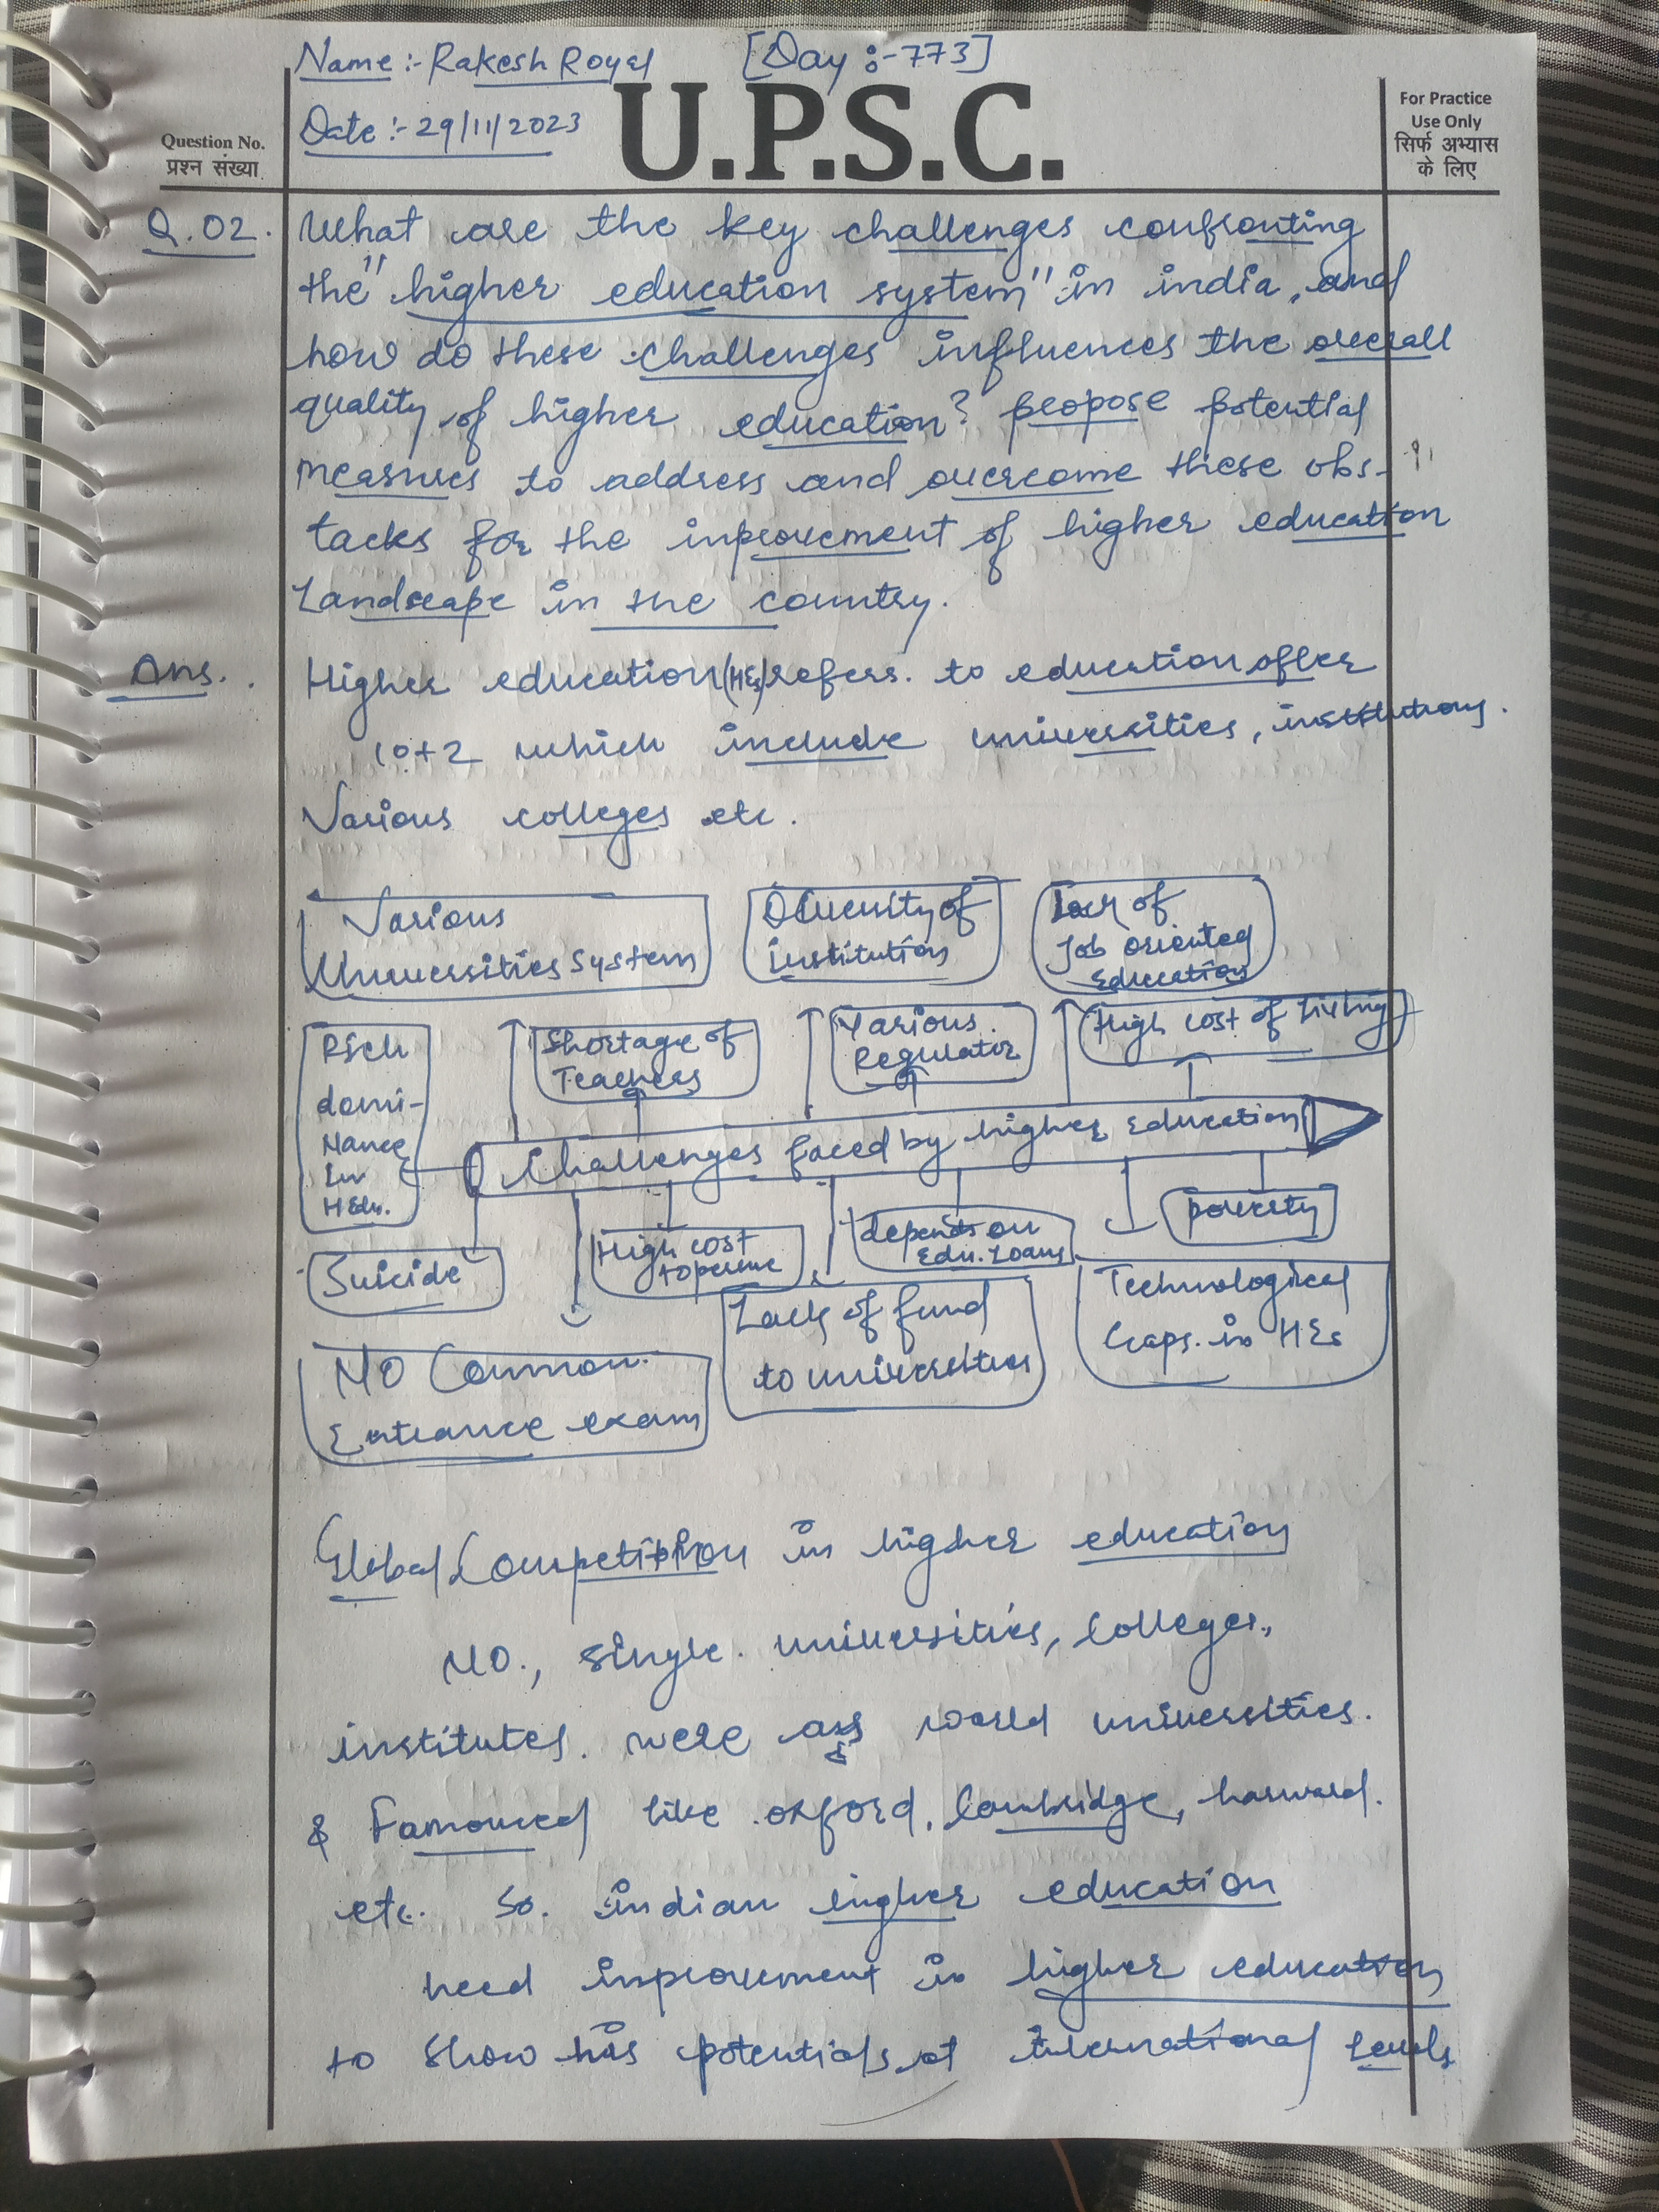 Name :- Rakesh Royal [Day :- 773]
Date :- 29/11/2023
U.P.S.C.
Question No.
प्रश्न संख्या
For Practice
Use Only
सिर्फ अभ्यास
के लिए
Q. 02. What are the key challenges confronting
the "higher education system" in india, and
how do these challenges influences the overall
quality of higher education? propose potential
measures to address and overcome these obs-
tacks for the inprovement of higher education
Landscape in the country.
Ans. Higher education (HEs) refers. to education after
10+2 which include universities, institutions.
Various colleges etc.
Various
Universities System
Diversity of
institution
Lack of
Job oriented
Education
Rich
domi-
nance
in
HEdu.
Shortage of
Teachers
Various.
Regulator
High cost of living
Challenges faced by higher Education
Suicide
High cost
depends on
Edu. Loans.
poverty
No Common
Entrance exam
Lack of fund
to universities
Technological
Gaps. in HEs
Global Competition in higher education
NO., single. universities, Colleges,
institutes. were as world universities.
& Famoused like oxford, Cambridge, harward.
etc. So. indian higher education
need inprovement in higher education
to show his potentials at international levels